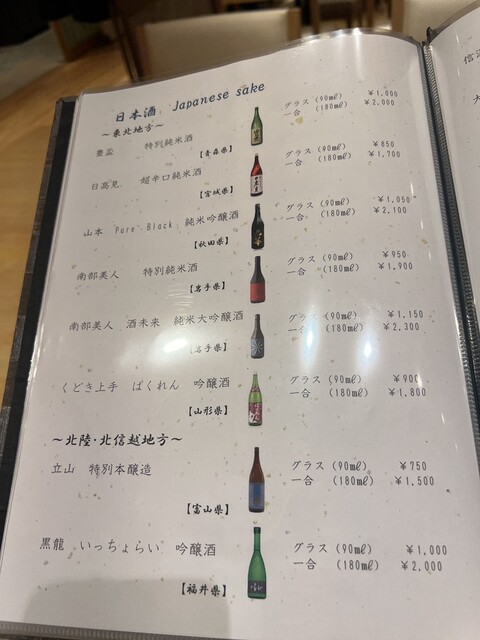 日本酒 Japanese sake
～東北地方～
豊盃 特別純米酒 グラス (90mℓ) ￥1,000
【青森県】 一合 (180mℓ) ￥2,000
日高見 超辛口純米酒 グラス (90mℓ) ￥850
【宮城県】 一合 (180mℓ) ￥1,700
山本 Pure Black 純米吟醸酒 グラス (90mℓ) ￥1,050
【秋田県】 一合 (180mℓ) ￥2,100
南部美人 特別純米酒 グラス (90mℓ) ￥950
【岩手県】 一合 (180mℓ) ￥1,900
南部美人 酒未来 純米大吟醸酒 グラス (90mℓ) ￥1,150
【岩手県】 一合 (180mℓ) ￥2,300
くどき上手 ばくれん 吟醸酒 グラス (90mℓ) ￥900
【山形県】 一合 (180mℓ) ￥1,800
～北陸・北信越地方～
立山 特別本醸造 グラス (90mℓ) ￥750
【富山県】 一合 (180mℓ) ￥1,500
黒龍 いっちょらい 吟醸酒 グラス (90mℓ) ￥1,000
【福井県】 一合 (180mℓ) ￥2,000